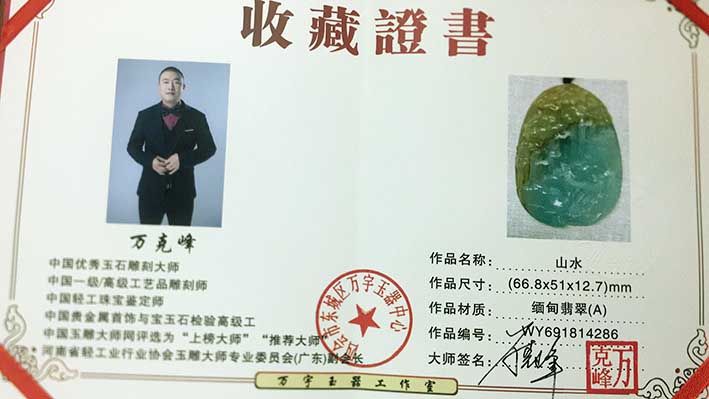 收藏證書
万克峰
中国优秀玉石雕刻大师
中国一级/高级工艺品雕刻师
中国轻工珠宝鉴定师
中国贵金属首饰与宝玉石检验高级工
中国玉雕大师网评选为“上榜大师”“推荐大师”
河南省轻工业行业协会玉雕大师专业委员会(广东)副会长
市东城区万宇玉器中心
作品名称: 山水
作品尺寸: (66.8x51x12.7)mm
作品材质: 缅甸翡翠(A)
作品编号: WY691814286
大师签名:
万克峰
万宇玉器工作室